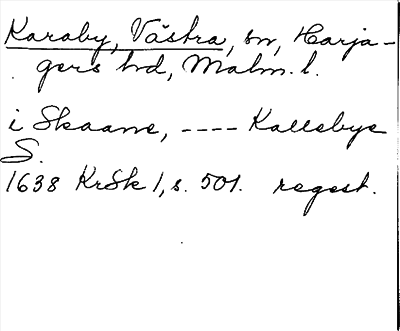 Karaby, Västra, sn, Harja-
gers hd, Malm. l.
i Skaane, ---- Kallebye
S.
1638 KrSk 1, s. 501. regest.